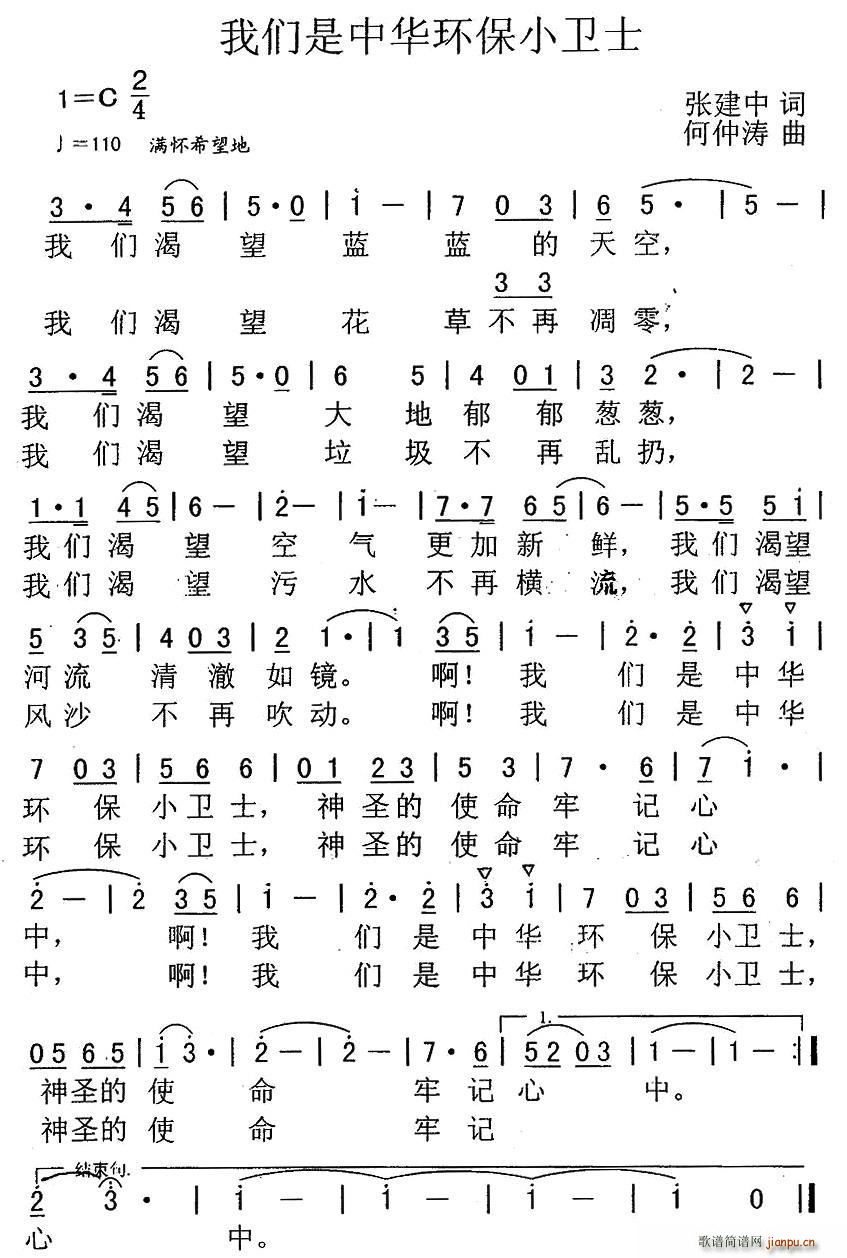 我们是中华环保小卫士
1=C 2/4
张建中 词
♩=110 满怀希望地
何仲涛 曲
3·4 56 | 5·0 | i — | 7 03 | 6 5· | 5 — |
我们渴望蓝蓝的天空，
3 3
我们渴望花草不再凋零，
3·4 56 | 5·0 | 6 5 | 4 01 | 3 2· | 2 — |
我们渴望大地郁郁葱葱，
我们渴望垃圾不再乱扔，
1·1 45 | 6 — | 2̇ — | i — | 7·7 65 | 6 — | 5·5 5i |
我们渴望空气更加新鲜，我们渴望
我们渴望污水不再横流，我们渴望
5 35 | 4 03 | 2 1· | 1 35 | i — | 2̇·2̇ | 3̇ i |
河流清澈如镜。啊！我们是中华
风沙不再吹动。啊！我们是中华
7 03 | 56 6 | 01 23 | 5 3 | 7·6 | 7 i· |
环保小卫士，神圣的使命牢记心
环保小卫士，神圣的使命牢记心
2̇ — | 2̇ 35 | i — | 2̇·2̇ | 3̇ i | 7 03 | 56 6 |
中，啊！我们是中华环保小卫士，
中，啊！我们是中华环保小卫士，
1.
05 65 | i 3̇· | 2̇ — | 2̇ — | 7·6 | 52 03 | 1 — | 1 — :|
神圣的使命牢记心中。
神圣的使命牢记
结束句.
2̇ 3̇· | i — | i — | i — | i 0 ||
心中。
歌谱简谱网
jianpu.cn